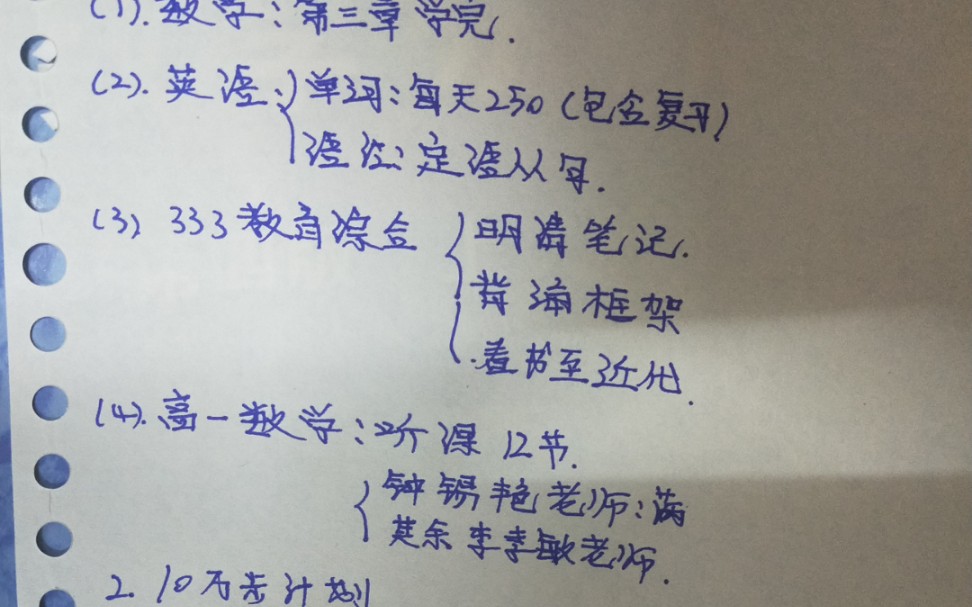 (1).数学：第三章学完.
(2).英语：单词：每天250(包含复习)
语法：定语从句.
(3) 333教育综合 明清笔记.
背诵框架
看书至近代.
(4).高一数学：听课12节.
钟锡艳老师：满
其余李李敏老师.
2.10万步计划